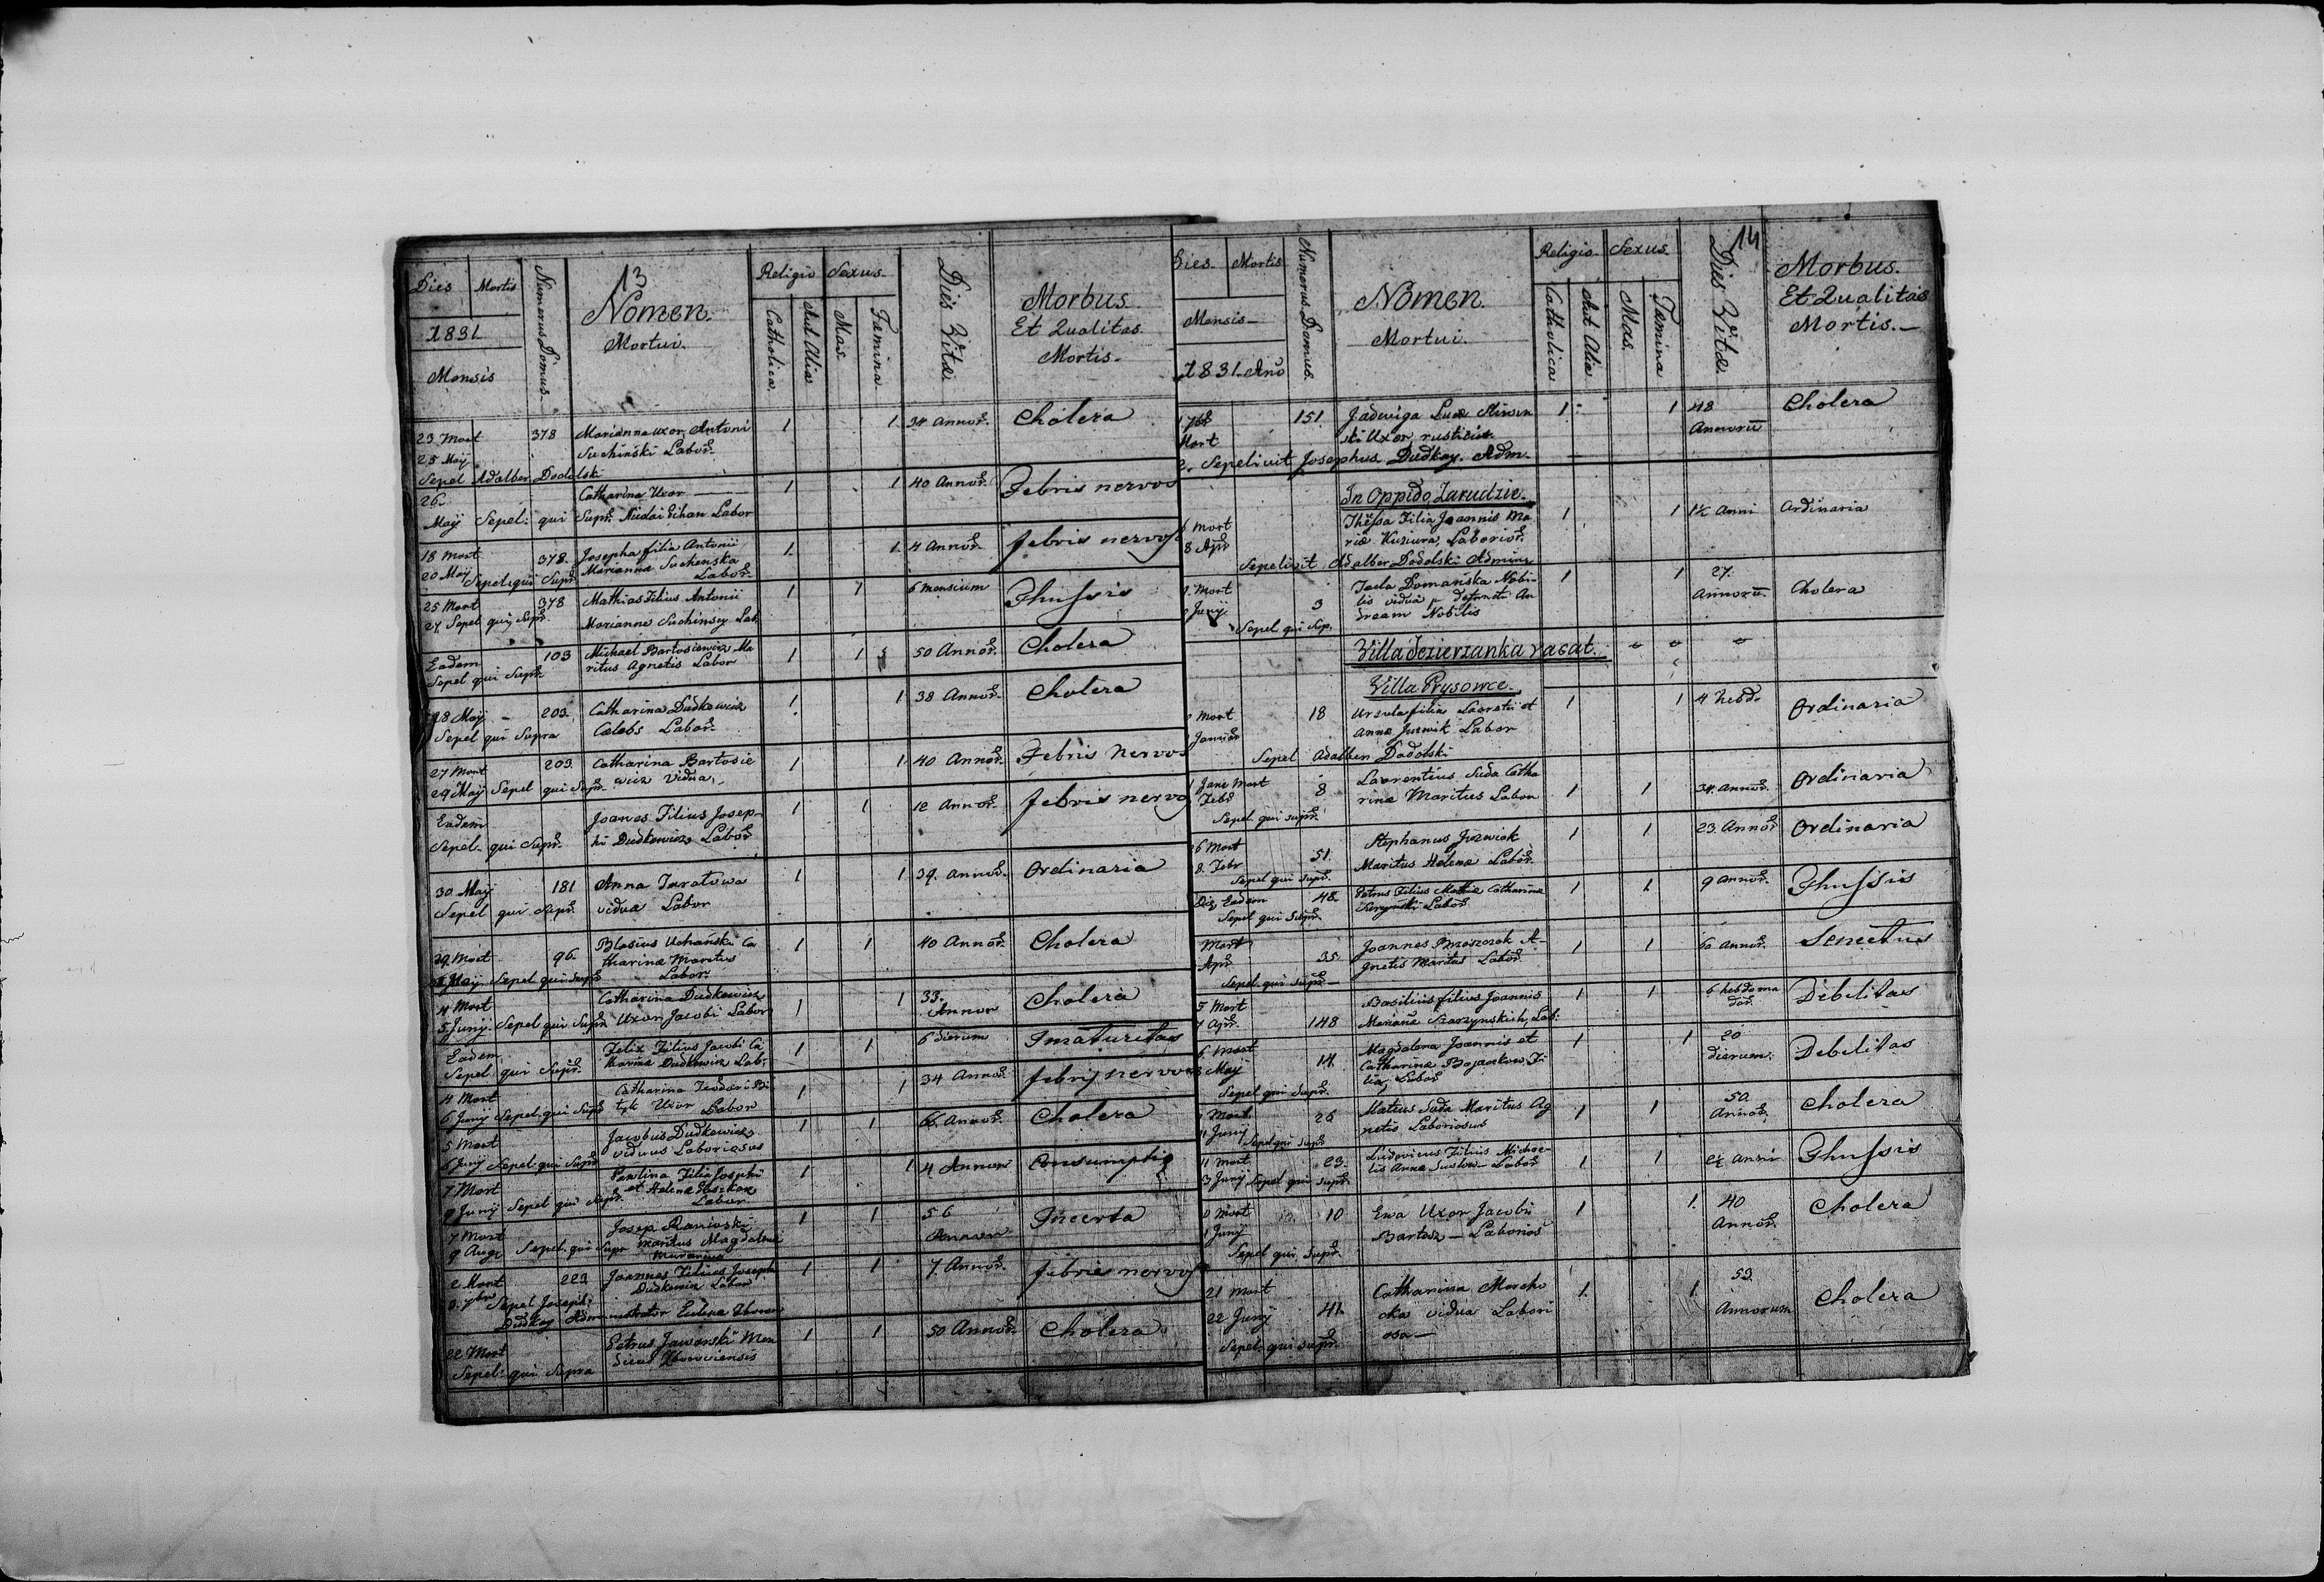 13
Dies Mortis
1831
Mensis
Numerus Domus.
Nomen.
Mortui.
Religio
Catholica.
Aut Alia
Sexus
Mas.
Fæmina
Dies Vitæ.
Morbus
Et Qualitas
Mortis.
23 Mort 378 Marianna uxor Antoni 1 1 34 Annor. Cholera
25 Maij Suchinski Labor.
Sepel Adalber Dodolski
26. Catharina Uxor 1 1 40 Annor. Febris nervos
Maij Sepel: qui Supr. Labor
18 Mort 378. Josepha filia Antonii 1. 1. 4 Annor. febris nervos
20 Maij Marianna Suchenska
Sepel qui Supr. Labor.
25 Mort 378 Mathias Filius Antonii 1 1 6 mensium Phussis
27 Sepel qui Supr. Marianna Suchinscy Lab.
Eadem 103 Michael Bartosiewicz Ma 1 1 50 Annor. Cholera
Sepel qui Supr. ritus Agnetis Labor
28 Maij 203. Catharina Dudkewicz 1 1 38 Annor. Cholera
Sepel qui Supra Cælebs Labor.
27 Mort 203 Catharina Bartosie 1 1 40 Annor. Febris Nervos
29 Maij Sepel qui Supr. wicz Vidua,
Eadem Joanes Filius Josep- 1 1 12 Annor. febris nervo
Sepel- qui Supr. hi Dudkewicz Labor
30 Maij 181 Anna 1 1 39. annor. Ordinaria
Sepel qui Supr. vidua Labor
29. Mort 96. Blasius Uchański Ca 1 1 40 Annor. Cholera
31 Maij Sepel qui Supr. tharinæ Maritus
Labor
4 Mort Catharina Dudkewicz 1 1 33. Cholera
5 Junij Sepel qui Supr. Uxor Jacobi Labor Annor
Eadem Felix Filius Jacobi Ca 1 1 6 dierum Imaturitas
Sepel qui Supr. tharina Dudkewicz Lab:
4 Mort Catharina Teodori 1 1 34 Annor. febris nervos
6 Junij Sepel qui Supr. Uxor Labor
5 Mort Jacobus Dudkewicz 1 1 66. Annor. Cholera
6 Junij Sepel qui Supr. viduus Laboriosus
7 Mort Paulina Filia Josephi 1 1 4 Annor Consumptio
9 Junij Sepel qui Supr. et Helena
Labor
7 Mort Josep Raniowski 1 1 56 Incerta
9 Aug Sepel. qui Supr maritus Magdalena Annor
2 Mort 223 Joannes Filius Joseph 1 1 7. Annor. febris nervos
3. 7br Sepel Joseph: Dudkewicz Labor
Dudkay Administrator
22 Mort Petrus Jaworski Men 1 1 50 Annor. Cholera
Sepel: qui Supra dicus Zborowiensis
14
Dies Mortis
Mensis
1831 Año
Numerus Domus.
Nomen.
Mortui.
Religio
Catholica
Aut Alia
Sexus
Mas.
Femina
Dies Vitæ.
Morbus.
Et Qualitas
Mortis.
7br 151 Jadwiga Lucæ 1 1 48 Cholera
Mort ski Uxor rusticis. Annorum
2. Sepelivit Josephus Dudkay. Adm.
In Oppido Zarudzie.
6 Mort Filia Joannis Ma 1 1 1½ Anni Ordinaria
8 Apr riæ Kuziura, Laborior.
Sepelivit Adalber Dodolski Admin
Mort 3 Tecla Domańska Nobi- 1 1 27. Cholera
Junij lis vidua p. defuncti An Annorum
Sepel qui Sup. dream Nobilis
Villa Jezierzanka vacat.
Villa Prysowce.
Mort 18 Ursula filia Laurentii et 1 1 4 hebd. Ordinaria
Januar Anna Juzwik Labor
Sepel Adalber Dodolski
Jane Mort 8 Laurentius Suda Catha 1 1 34. Annor. Ordinaria
Febr rinæ Maritus Labor
Sepel qui supr.
26 Mort 51. Stephanus Juzwiak 1 1 23. Annor Ordinaria
8 Febr Maritus Helenæ Labor.
Sepel qui supr.
Die Eadem 48. Petrus Filius Mathiæ Catharinæ 1 1. 9 Annor. Phussis
Sepel qui Supr. Labor
Mort 35 Joannes A- 1 1 60 Annor. Senectus
Apr gnetis Maritus Labor.
Sepel qui Supr-
5 Mort 148 Basilius filius Joannis 1 1 6 hebdoma Debilitas
7 Apr Mariana Skarzynskich, Lab: dar.
6 Mort 14. Magdalena Joannis et 1 1 20 Debilitas
8 Maij Catharinæ Bojankow Fi dierum.
Sepel qui Supr. lia, Labor
Mort 26 Mateus Suda Maritus Ag 1 1 50. Cholera
11 Junij netis Laboriosus Annor.
Sepel qui supr
11 Mort 23. Ludovicus Filius Michae 1 1 2½ Anni Phussis
3 Junij Sepel qui supr. lis Anna Suslow- Labor
Mort 10 Ewa Uxor Jacobi 1 1. 40 Cholera
Junij Bartosz - Laborios Annor.
Sepel qui supr.
21 Mort 41. Catharina Marcho 1. 1. 53. Cholera
22 Junij cka vidua Labori Annorum
Sepel qui supr. osa-